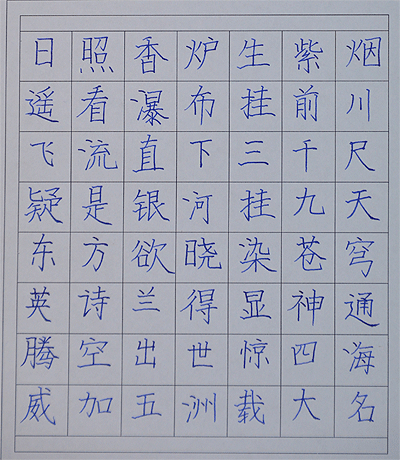 日照香炉生紫烟
遥看瀑布挂前川
飞流直下三千尺
疑是银河挂九天
东方欲晓染苍穹
英诗兰得显神通
腾空出世惊四海
威加五洲载大名